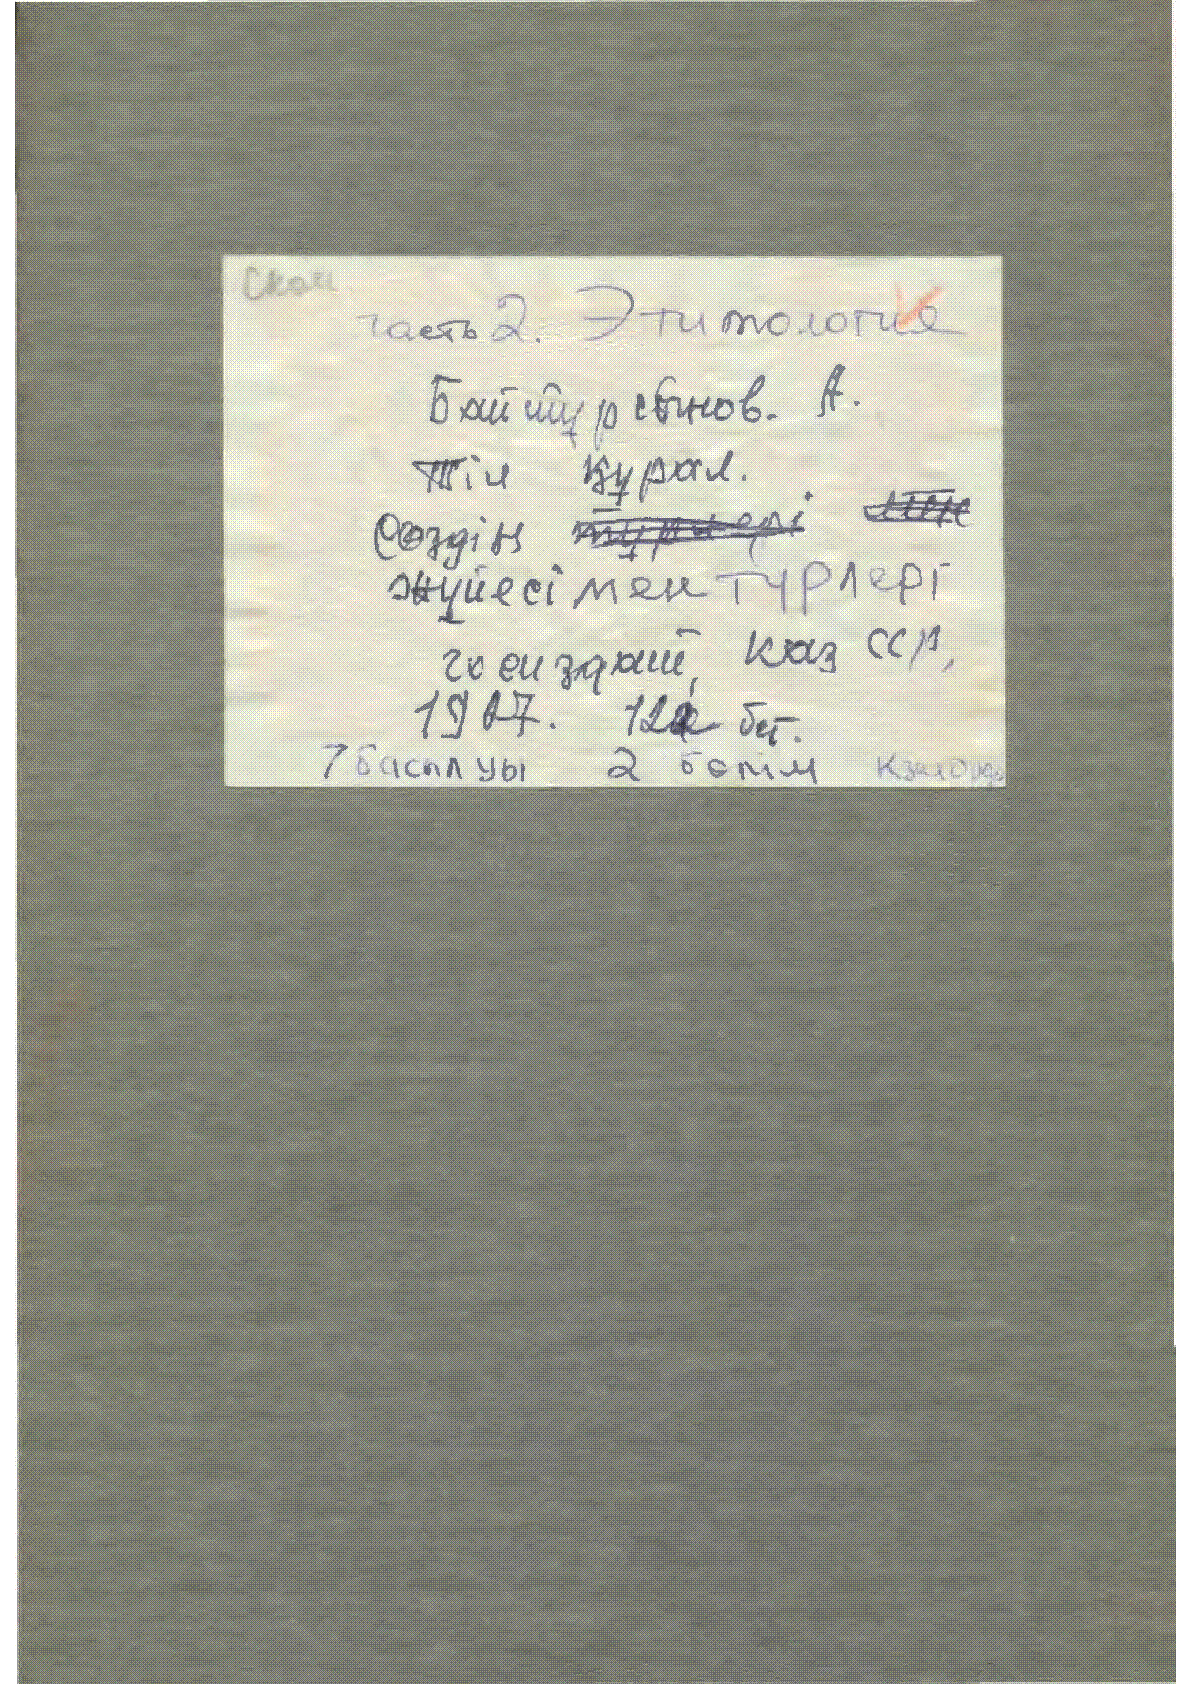 Скан
часть 2. Этимология
Байтұрсынов. А.
Тіл құрал.
Сөздің түрлері мен
жүйесі мен түрлері
госиздат, Каз ССР,
1927. 122 бет.
7 басылуы 2 бөлім